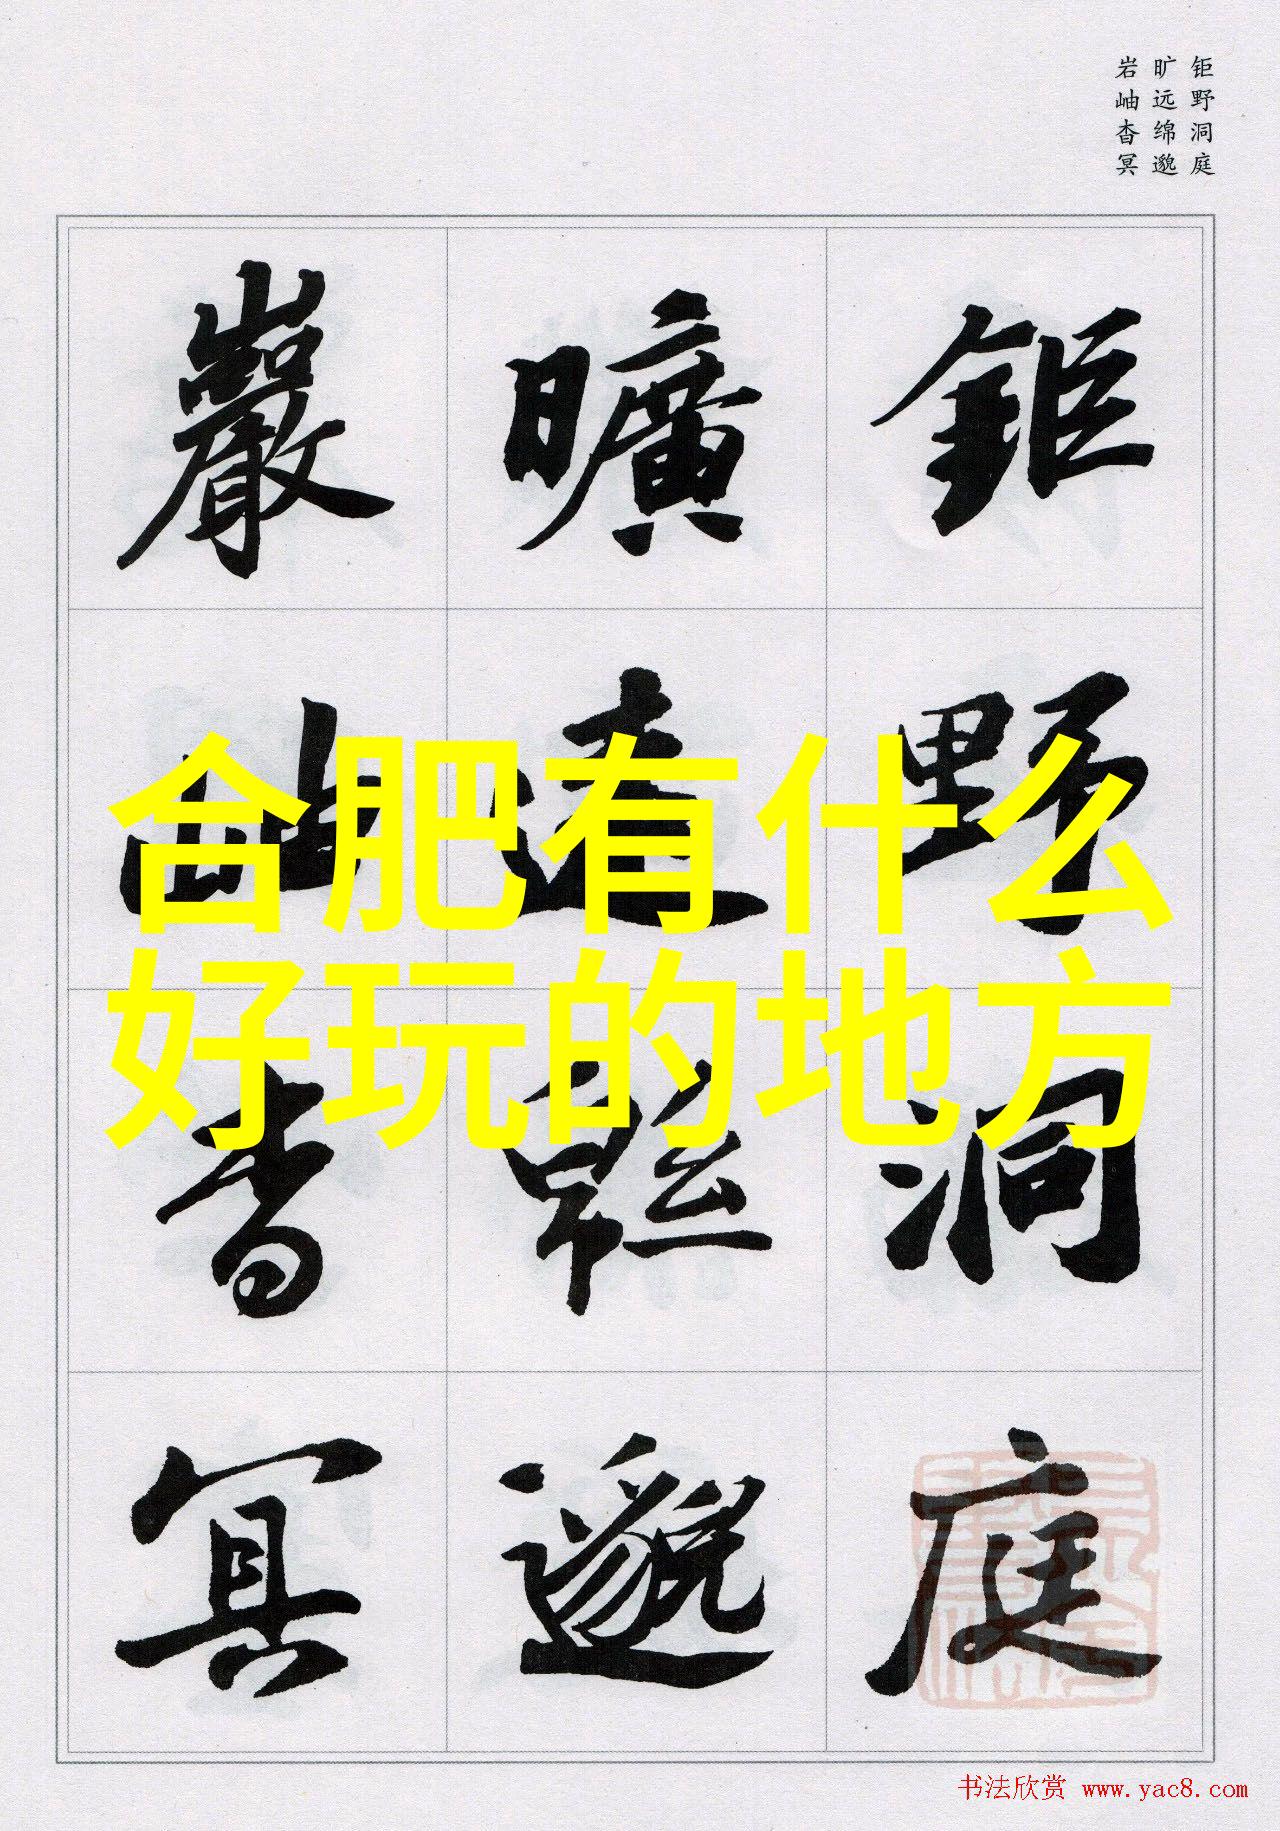 钜野洞庭
旷远绵邈
岩岫杳冥
鉅野洞庭
曠遠緜邈
巖岫杳冥
合肥有什么
好玩的地方
书法欣赏 www.yac8.com